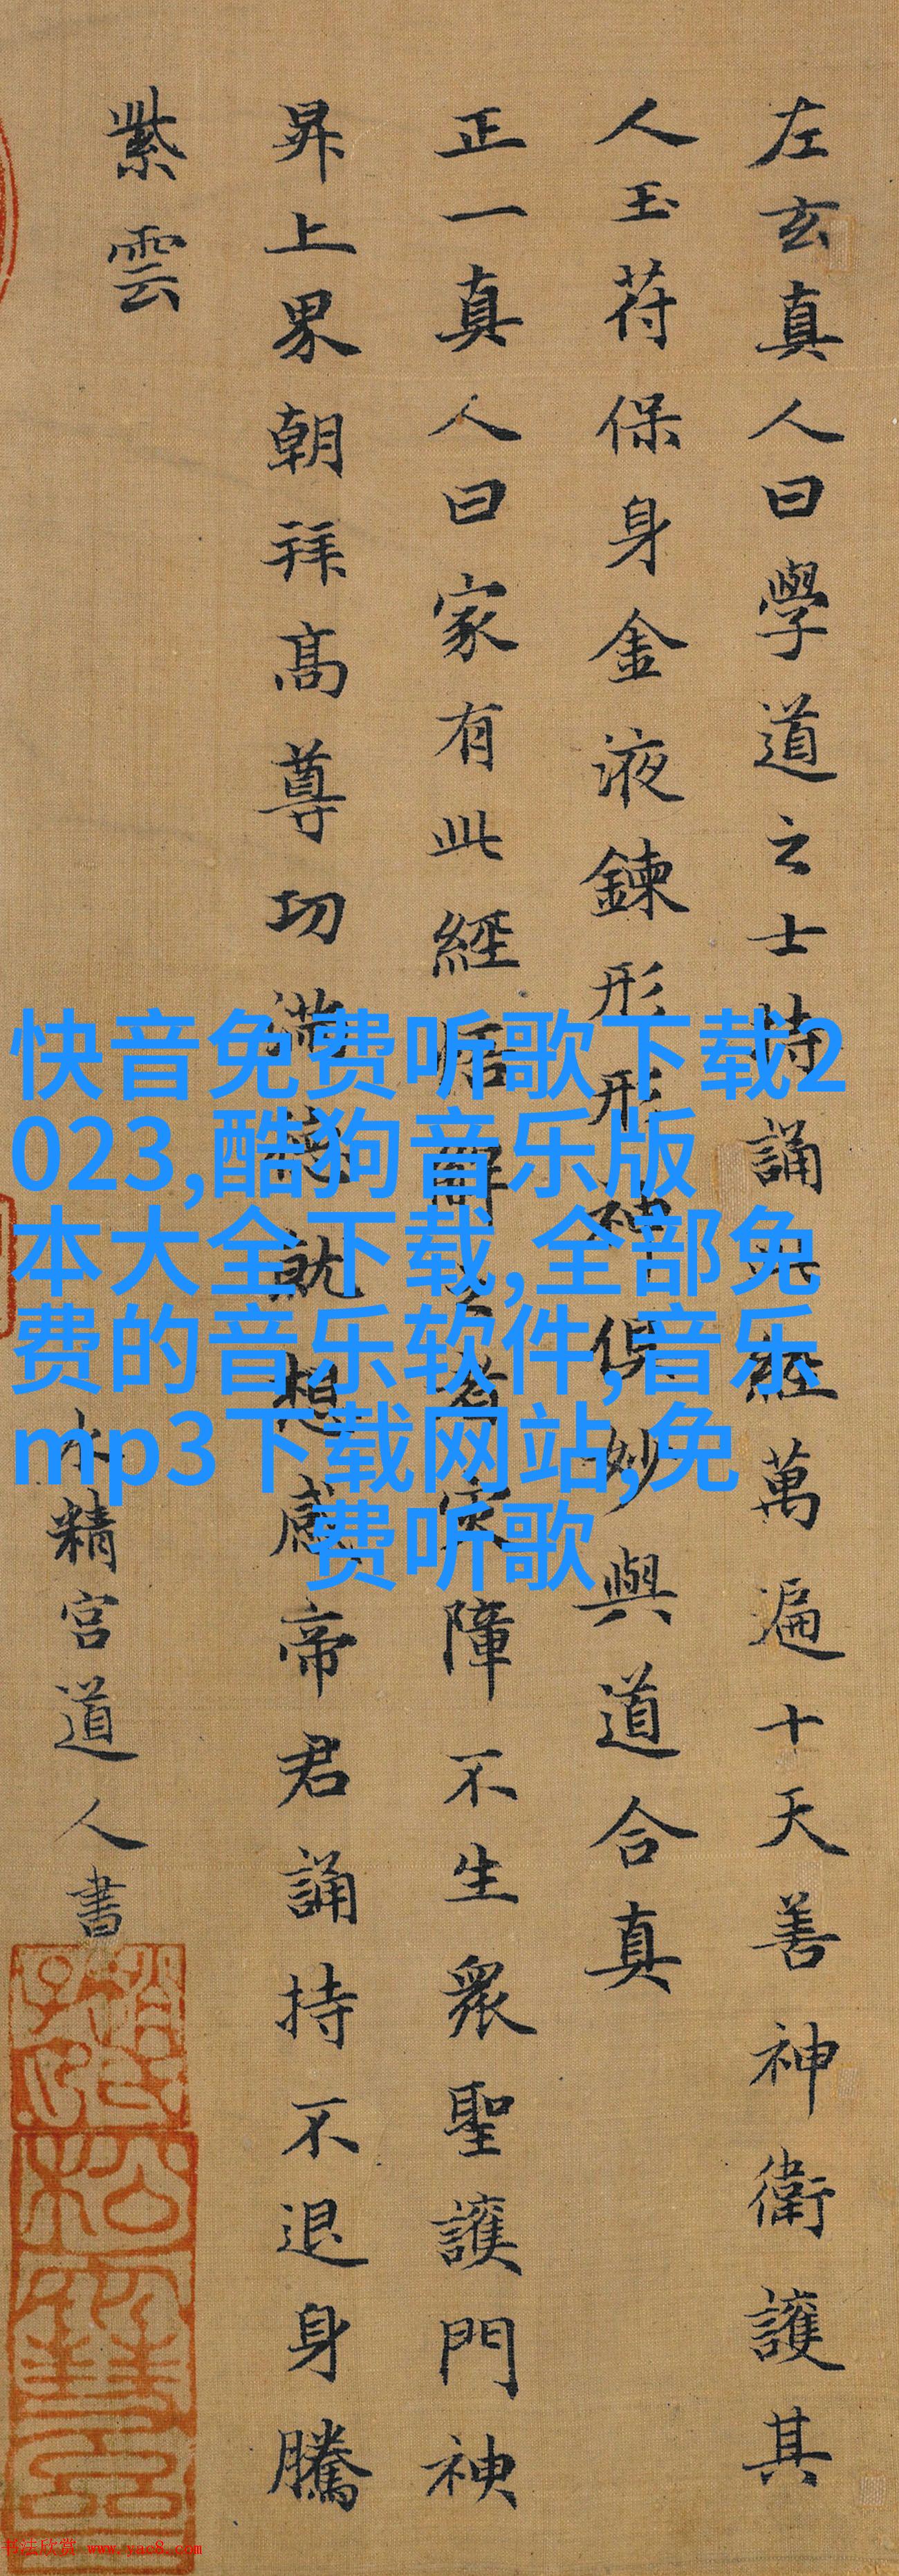 左玄真人曰學道之士持誦此經萬遍十天善神衛護其
人玉苻保身金液鍊形形神俱妙與道合真
正一真人曰家有此經悟解之者災障不生眾聖護門神
昇上界朝拜高尊功滿德就想感帝君誦持不退身騰
紫雲
水精宮道人書
快音免费听歌下载2
023,酷狗音乐版
本大全下载,全部免
费的音乐软件,音乐
mp3下载网站,免
费听歌
书法欣赏 www.yac8.com